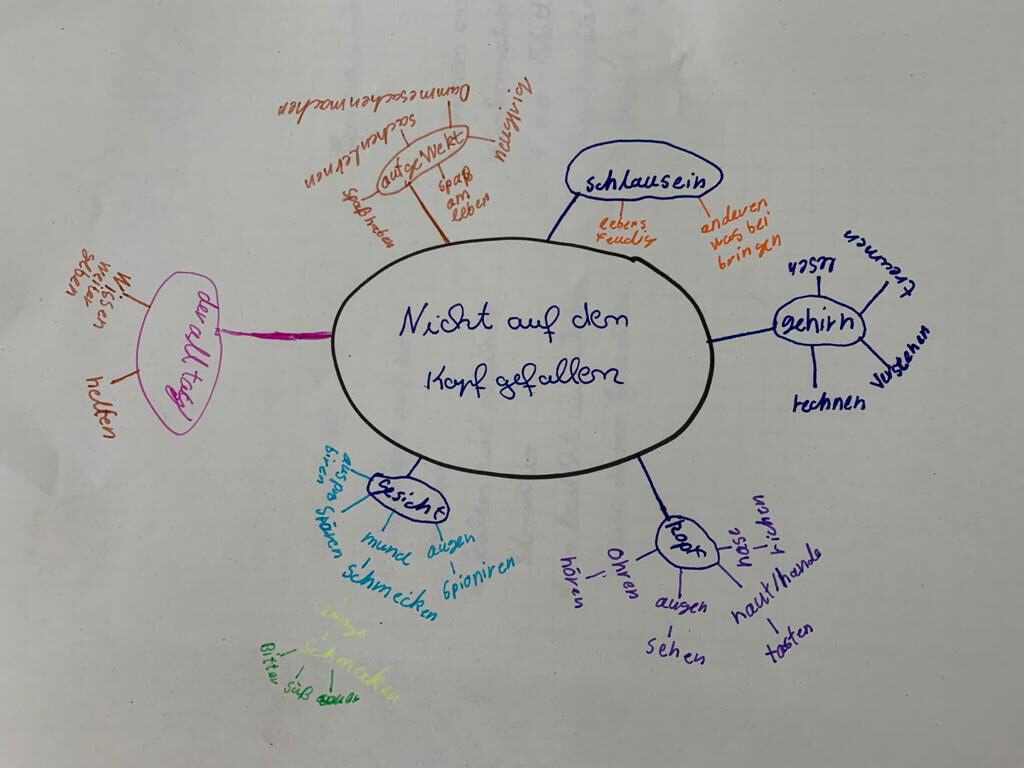 Nicht auf dem
Kopf gefallen
aufgeWekt
Dammesachenmachen
sachenlernen
spaß haben
spaß
am
leben
schlausein
lebens
feudig
anderen
was bei
bringen
gehirn
lesen
treeumen
verstehen
rechnen
kopf
nase
richen
haut/hände
tasten
augen
sehen
Ohren
hören
gesicht
auspro
biren
Spüren
mund
schmecken
augen
spioniren
zunge
schmecken
Bitter
süß
sauer
der alltag
Wissen
weiter
geben
helfen